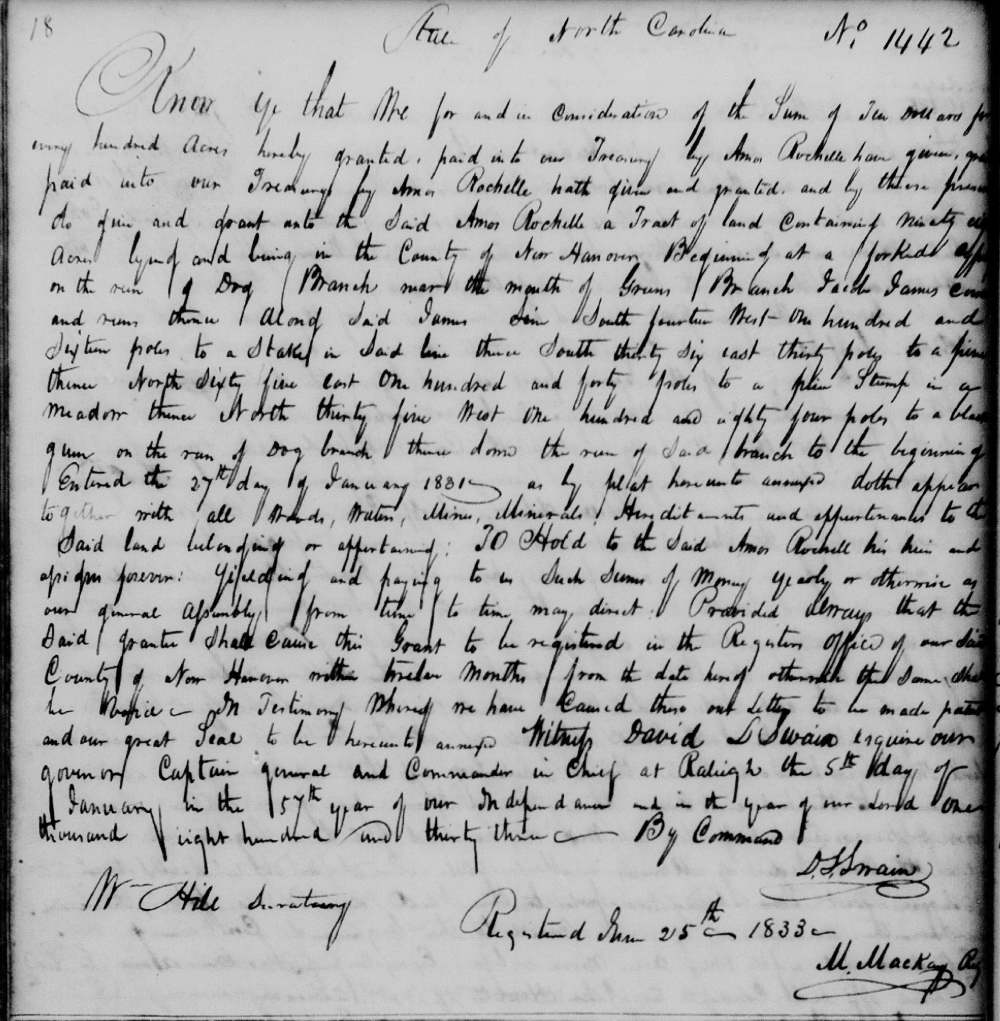 18 State of North Carolina No. 1442
Know ye that We for and in consideration of the Sum of Ten Dollars for
every hundred Acres hereby granted, paid into our Treasury by Amos Rochelle have given,
paid into our Treasury by Amos Rochelle hath given and granted, and by these
do give and grant unto the Said Amos Rochelle a Tract of land Containing ninety
Acres lying and being in the County of New Hanover Beginning at a forked
on the run of Dog Branch near the mouth of Greens Branch Jacob James
and runs thence Along Said James line South fourteen West One hundred and
Sixteen poles to a Stake in Said line thence South thirty Six east thirty poles to a pine
thence North Sixty five east One hundred and forty poles to a pine Stump in a
meadow thence North thirty five West One hundred and eighty four poles to a black
gum on the run of Dog branch thence down the run of Said branch to the beginning
Entered the 27th day of January 1831 as by plat hereunto annexed doth appear
together with all Woods, Waters, Mines, Minerals, Hereditaments and appurtenances to the
Said land belonging or appertaining: TO Hold to the Said Amos Rochell his heirs and
assigns forever: Yielding and paying to us Such Sums of Money yearly or otherwise as
our general Assembly from time to time may direct. Provided always that the
Said grantee Shall Cause this Grant to be registered in the Registers Office of our Said
County of New Hanover within twelve Months from the date hereof otherwise the Same Shall
be Void In Testimony Whereof we have Caused these our Letters to be made patent
and our great Seal to be hereunto annexed Witness David L Swain esquire our
governor Captain general and Commander in Chief at Raleigh the 5th day of
January in the 57th year of our Independance and in the year of our Lord One
thousand eight hundred and thirty three By Command
D. L. Swain
Wm Hill Secretary
Registered June 25th 1833
M. Mackay Reg